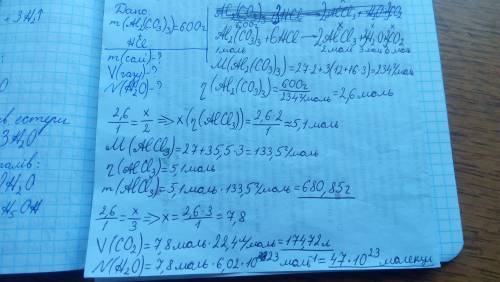 + 3H₂↑
в. естери
3H₂O
талів:
H₂O
H₅OH
Дано:
m(Al₂(CO₃)₃)=600г
HCl
m(солі)-?
V(газу)-?
N(H₂O)-?
600г
Al₂(CO₃)₃+6HCl → 2AlCl₃+3H₂O+3CO₂
1моль 2моль 3моль
M(Al₂(CO₃)₃)=27·2+3(12+16·3)=234г/моль
η(Al₂(CO₃)₃)=600г/234г/моль=2,6моль
2,6/1 = x/2 => x(η(AlCl₃))=2,6·2/1≈5,1моль
M(AlCl₃)=27+35,5·3=133,5г/моль
η(AlCl₃)=5,1моль
m(AlCl₃)=5,1моль·133,5г/моль=680,85г
2,6/1 = x/3 => x=2,6·3/1=7,8
V(CO₂)=7,8моль·22,4л/моль=174,72л
N(H₂O)=7,8моль·6,02·10²³моль⁻¹=47·10²³молекул